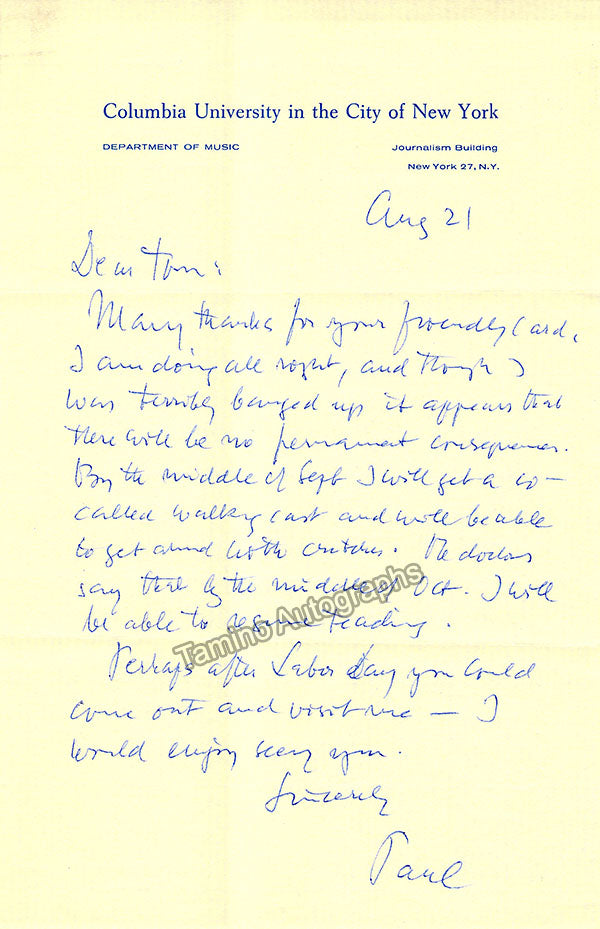 Columbia University in the City of New York
DEPARTMENT OF MUSIC
Journalism Building
New York 27, N.Y.
Aug 21
Dear Tom:
Many thanks for your friendly card.
I am doing all right, and though I
was terribly banged up it appears that
there will be no permanent consequences.
By the middle of Sept I will get a so-
called walking cast and will be able
to get around with crutches. The doctors
say that by the middle of Oct. I will
be able to resume teaching.
Tamino Autographs
Perhaps after Labor day you could
come out and visit me — I
would enjoy seeing you.
Sincerely
Paul